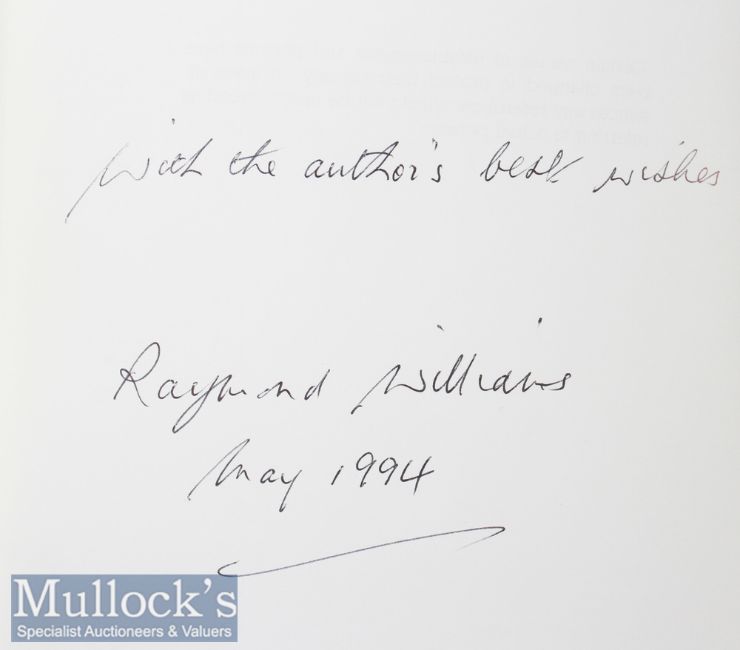 With the author's best wishes
Raymond Williams
May 1994
Mullock's
Specialist Auctioneers & Valuers